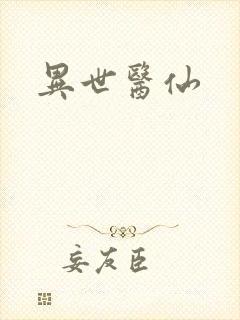 異世醫仙
妄友臣